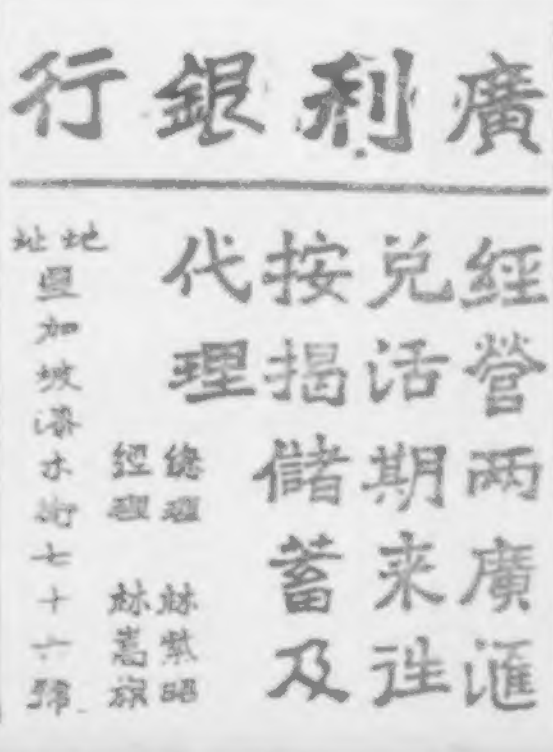 廣利銀行
經營两廣滙
兑活期来往
按揭儲蓄及
代理
總理 林紫昭
經理 林嵩裱
地址
星加坡漆木街七十六號